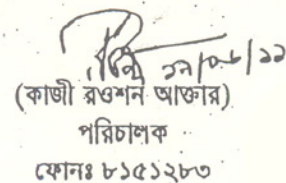 ২৯/০৮/১১
(কাজী রওশন আক্তার)
পরিচালক
ফোনঃ ৮১৫১২৮৩